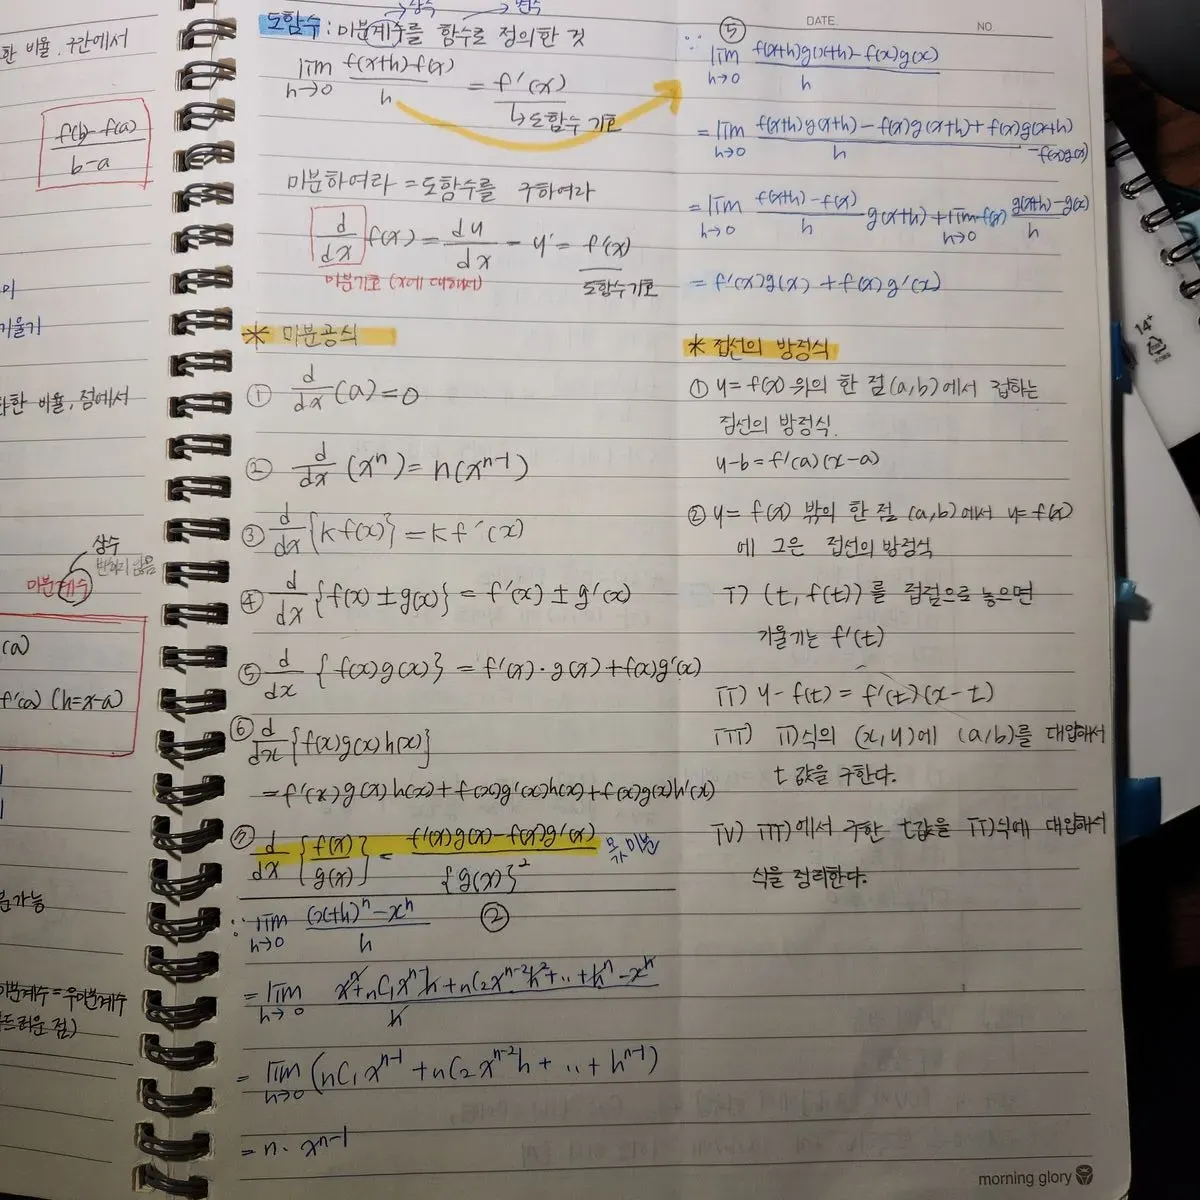 한 비율, 구간에서
f(b)-f(a)
b-a
기울기
한 비율, 점에서
상수
변하지 않음
미분계수
(a)
f'(a) (h=x-a)
분가능
미분계수=우미분계수
드러운 점)
상수 변수
도함수: 미분계수를 함수로 정의한 것
lim f(x+h)-f(x) / h = f'(x)
h→0
↳도함수 기호
미분하여라 = 도함수를 구하여라
d/dx f(x) = dy/dx = y' = f'(x)
미분기호 (x에 대해서)
도함수기호
* 미분공식
① d/dx (a)=0
② d/dx (xⁿ)= n(xⁿ⁻¹)
③ d/dx {kf(x)}=kf'(x)
④ d/dx {f(x)±g(x)} = f'(x)±g'(x)
⑤ d/dx {f(x)g(x)} = f'(x)·g(x)+f(x)g'(x)
⑥ d/dx {f(x)g(x)h(x)}
=f'(x)g(x)h(x)+f(x)g'(x)h(x)+f(x)g(x)h'(x)
⑦ d/dx {f(x)/g(x)} = f'(x)g(x)-f(x)g'(x) / {g(x)}²
미분
②
∵ lim (x+h)ⁿ-xⁿ / h
h→0
= lim xⁿ+nC₁xⁿ⁻¹h+nC₂xⁿ⁻²h²+..+hⁿ-xⁿ / h
h→0
= lim (nC₁xⁿ⁻¹+nC₂xⁿ⁻²h+..+hⁿ⁻¹)
h→0
= n· xⁿ⁻¹
DATE
NO
⑤
∵ lim f(x+h)g(x+h)-f(x)g(x) / h
h→0
= lim f(x+h)g(x+h)-f(x)g(x+h)+f(x)g(x+h)-f(x)g(x) / h
h→0
= lim f(x+h)-f(x) / h g(x+h)+lim f(x) g(x+h)-g(x) / h
h→0 h→0
= f'(x)g(x)+f(x)g'(x)
* 접선의 방정식
① y=f(x) 위의 한 점(a,b)에서 접하는
접선의 방정식.
y-b=f'(a)(x-a)
② y=f(x) 밖의 한 점 (a,b)에서 y=f(x)
에 그은 접선의 방정식
i) (t, f(t))를 접점으로 놓으면
기울기는 f'(t)
ii) y-f(t)=f'(t)(x-t)
iii) ii)식의 (x,y)에 (a,b)를 대입해서
t값을 구한다.
iv) iii)에서 구한 t값을 ii)식에 대입해서
식을 정리한다.
14+
morning glory